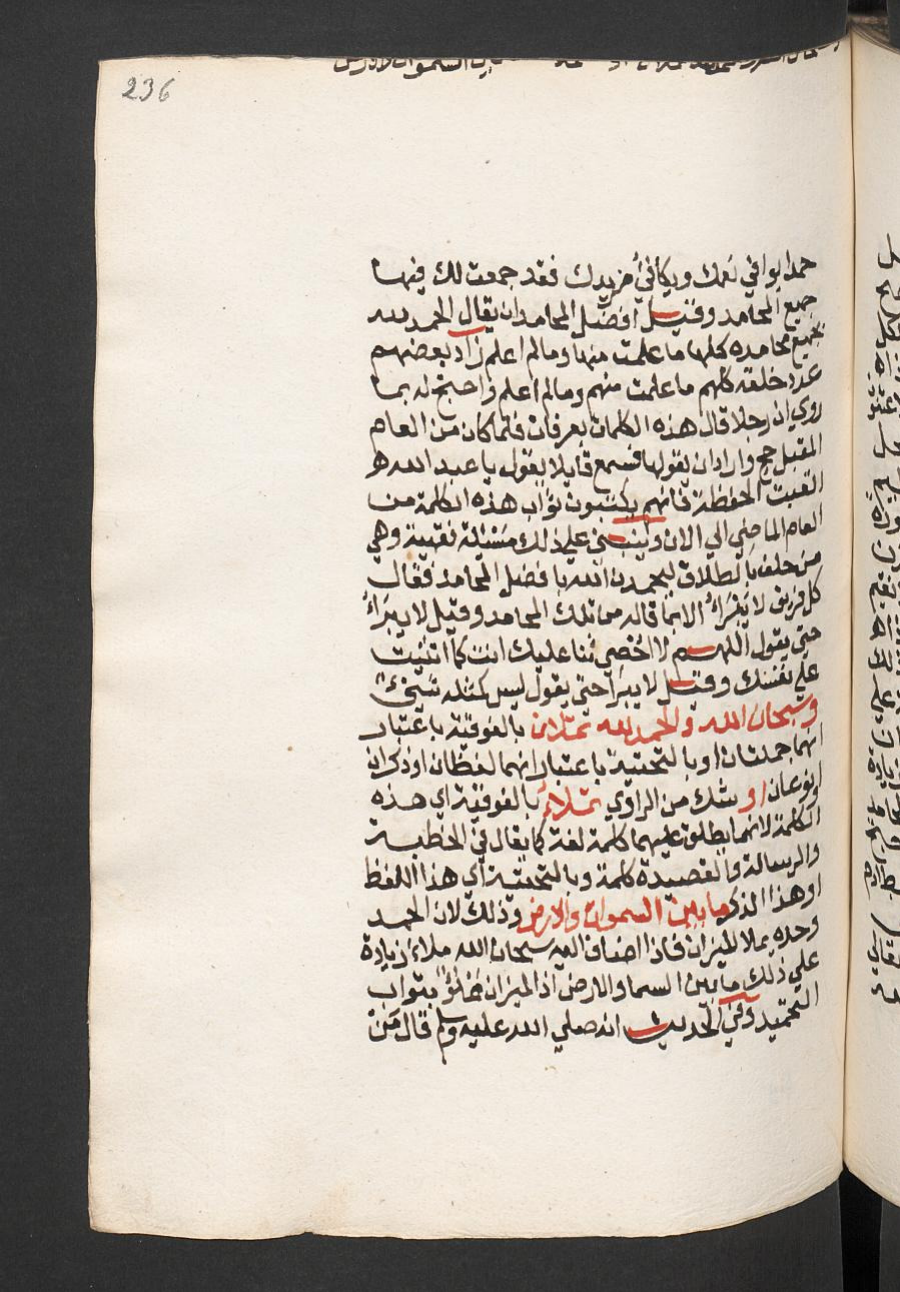 236
حمدا يوافي نعمك ويكافئ مزيدك فقد جمعت لك فيها
جميع المحامد وقيل افضل المحامد ان يقال الحمد لله
بجميع محامده كلها ما علمت منها وما لم اعلم زاد بعضهم
عدد خلقه كلهم ما علمت منهم وما لم اعلم واحتج له بما
روي ان رجلا قال هذه الكلمات بعرفات فلما كان من العام
المقبل حج واراد ان يقولها فسمع قايلا يقول يا عبد الله
اتعبت الحفظة فانهم يكتبون ثواب هذه الكلمة من
العام الماضي الي الان وينبني علي ذلك مسئلة فقهية وهي
من حلف بالطلاق ليحمدن الله بافضل المحامد فقال
كل فريق لا يبرأ الا بما قاله من تلك المحامد وقيل لا يبرأ
حتي يقول اللهم لا احصي ثنا عليك انت كما اثنيت
علي نفسك وقيل لا يبرأ حتي يقول ليس كمثله شيئ
وسبحان الله والحمد لله تملان بالفوقية باعتبار
انهما جملتان او بالتحتية باعتبار انهما لفظان او ذكران
او نوعان او شك من الراوي تملاء بالفوقية اي هذه
الكلمة لانهما يطلق عليهما كلمة لغة كما يقال في الخطبة
والرسالة والقصيدة كلمة وبالتحتية اي هذا اللفظ
او هذا الذكر ما بين السموات والارض وذلك لان الحمد
وحده يملا الميزان فاذا اضاف اليه سبحان الله ملاء زيادة
علي ذلك ما بين السما والارض اذ الميزان مملؤ بثواب
التحميد وفي الحديث انه صلي الله عليه وسلم قال من